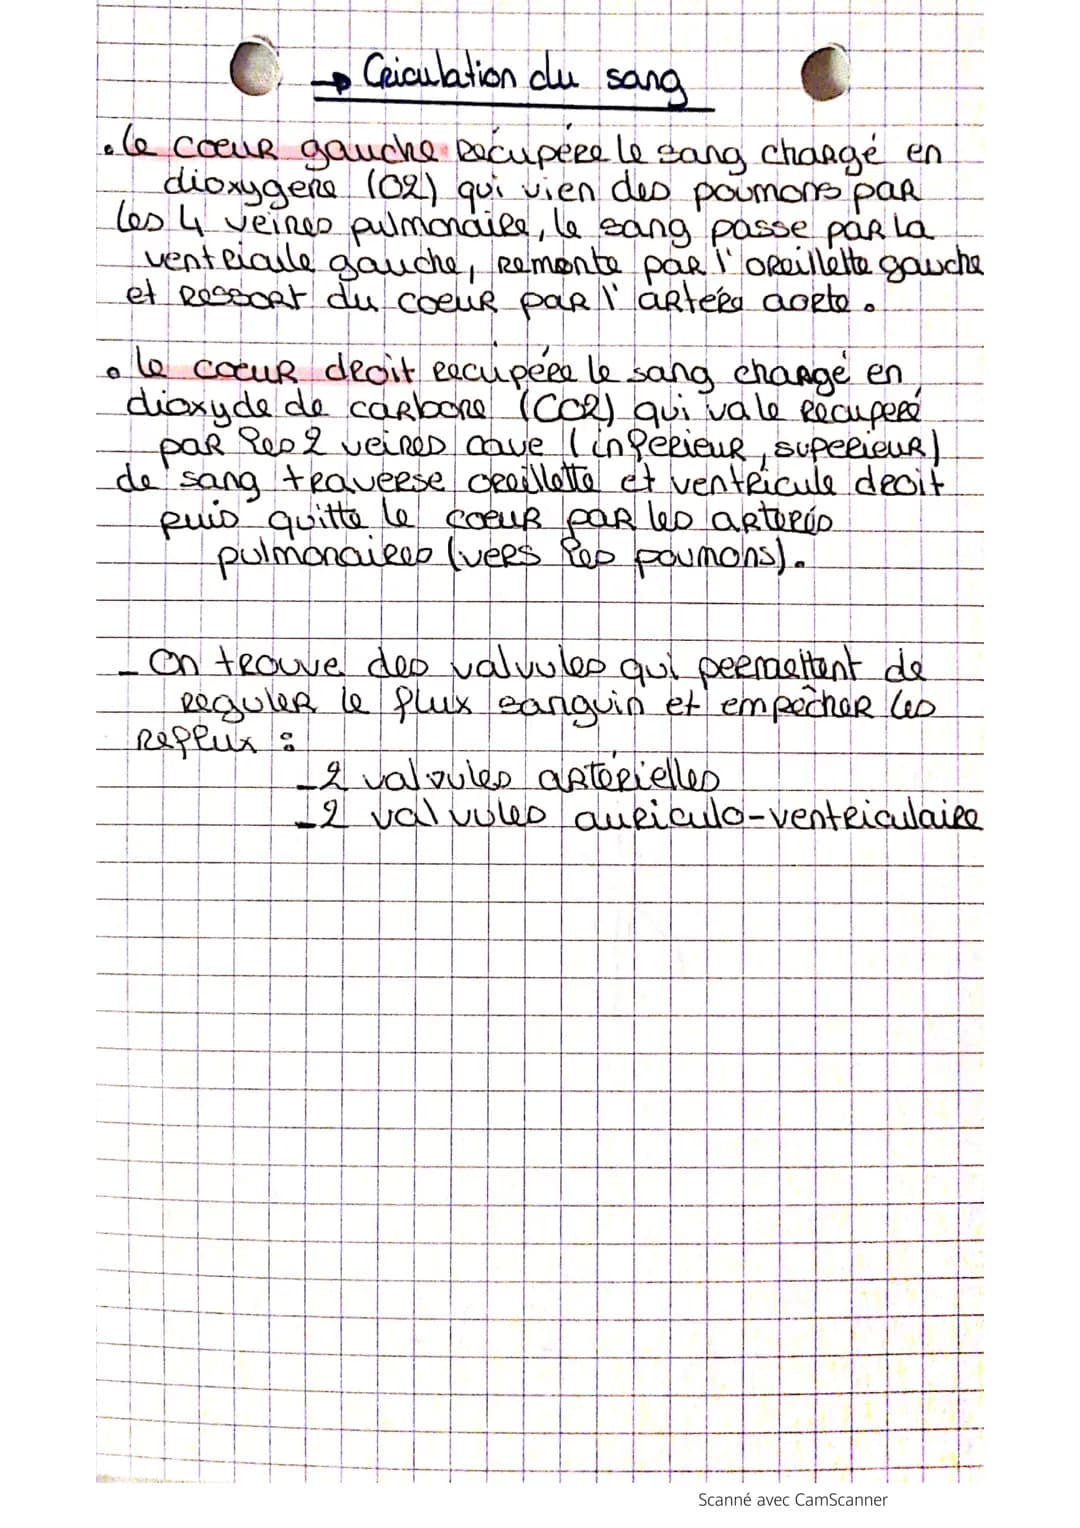 → Criculation du sang
• le coeur gauche recupére le sang chargé en
dioxygene (O2) qui vien des poumons par
les 4 veines pulmonaire, le sang passe par la
ventricule gauche, remonte par l'oreillette gauche
et ressort du coeur par l'artére aorte.
• le coeur droit recupére le sang chargé en
dioxyde de carbone (CO2) qui va le recuperé
par les 2 veines cave (inferieur, superieur)
de sang traverse oreillette et ventricule droit
puis quitte le coeur par les arteres
pulmonaires (vers les poumons).
- On trouve des valvules qui permettent de
reguler le flux sanguin et empêcher les
reflux :
- 2 valvules artérielles
- 2 valvules auriculo-ventriculaire
Scanné avec CamScanner